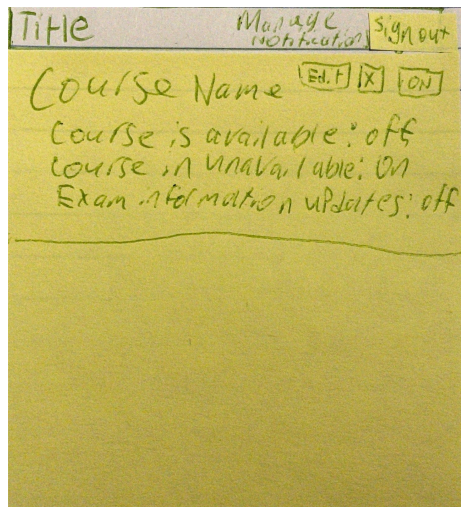 Title Manage Notification Sign out
Course Name Edit X ON
Course is available: off
Course in unavailable: On
Exam information updates: off